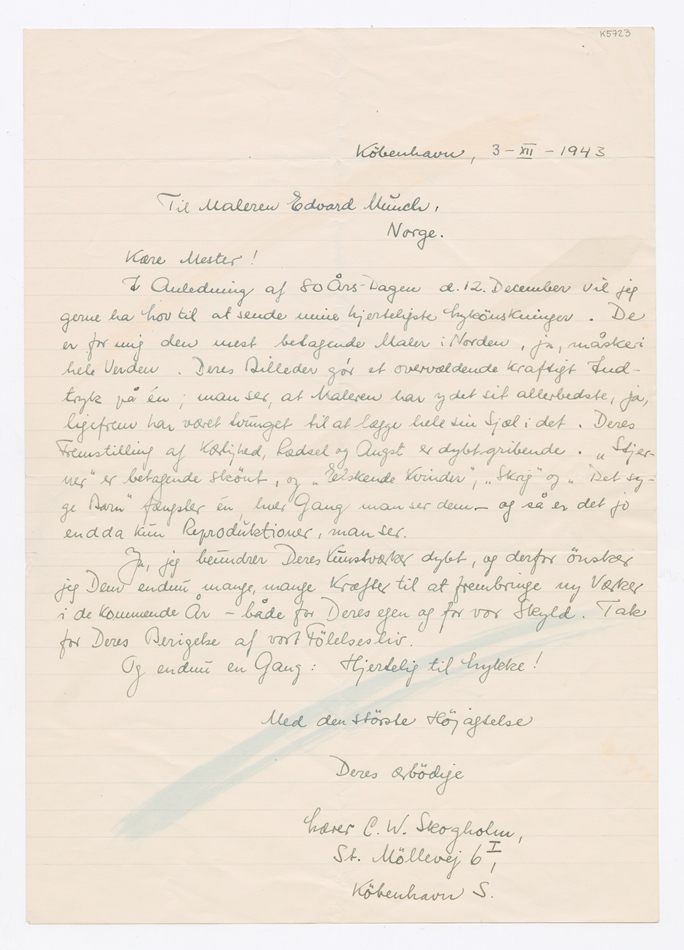 K5723
Köbenhavn, 3-XII-1943
Til Maleren Edvard Munch,
Norge.
Kære Mester!
I Anledning af 80 Års-Dagen d. 12. December vil jeg
gerne ha lov til at sende mine hjerteligste Lykönskninger. De
er for mig den mest betagende Maler i Norden, ja, måske i
hele Verden. Deres Billeder gör et overvældende kraftigt Ind-
tryk på én; man ser, at Maleren har ydet sit allerbedste, ja,
ligefrem har været tvunget til at lægge hele sin Sjæl i det. Deres
Fremstilling af Kærlighed, Rædsel og Angst er dybt gribende. „Stjer-
ner" er betagende skönt, og „Elskende Kvinder", „Skrig" og „Det sy-
ge Barn" fængsler én, hver Gang man ser dem – og så er det jo
endda kun Reproduktioner, man ser.
Ja, jeg beundrer Deres Kunstværker dybt, og derfor önsker
jeg Dem endnu mange, mange Kræfter til at frembringe ny Værker
i de kommende År – både for Deres egen og for vor Skyld. Tak
for Deres Berigelse af vort Fölelsesliv.
Og endnu en Gang: Hjertelig til Lykke!
Med den störste Höjagtelse
Deres ærbödige
Lærer C. W. Skogholm,
St. Möllevej 6 I,
Köbenhavn S.